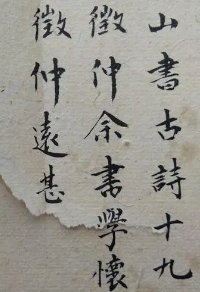 山書古詩十九
徵仲余書學懷
徵仲遠甚